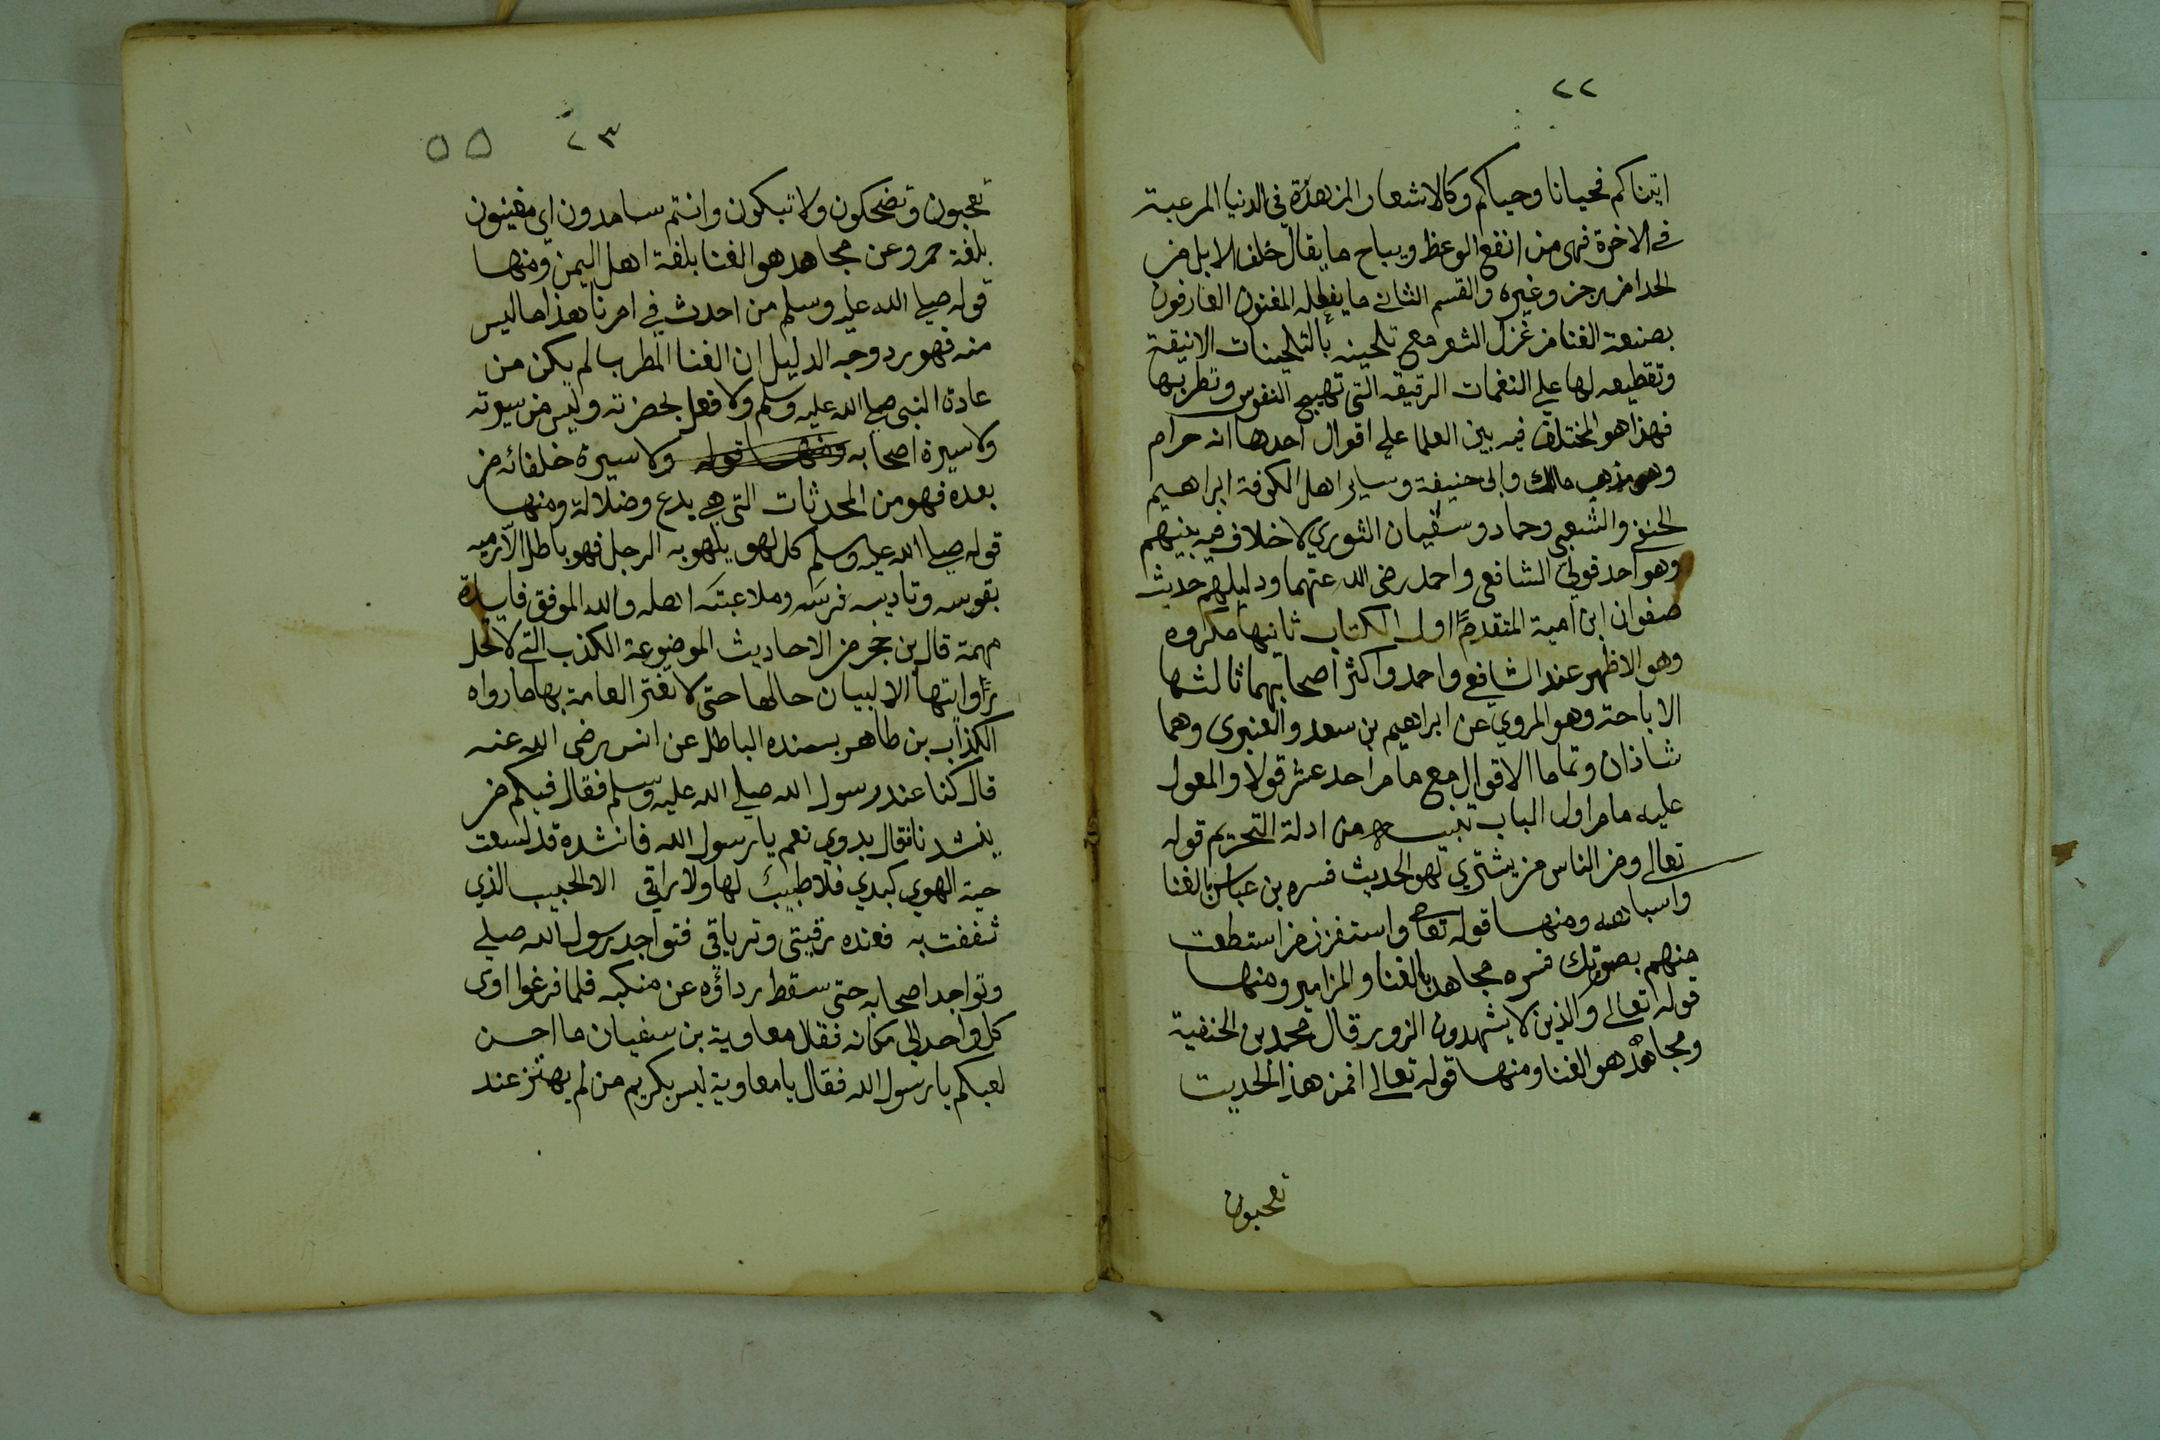 ٢٢
اتيناكم فحيانا وحياكم وكالاشعار المزهدة في الدنيا المرغبة
في الاخرة فهى من انفع الوعظ ويباح ما يقال خلف الابل من
الحدا من رجز وغيره والقسم الثاني ما يفعله المغنون العارفون
بصنعة الغنا من غزل الشعر مع تلحينه بالتلحينات الانيقة
وتقطيعه لها علي النغمات الرقيقه التي تهيج النفوس وتطربها
فهذا هو المختلف فيه بين العلما علي اقوال احدها انه حرام
وهو مذهب مالك وابى حنيفة وساير اهل الكوفة ابراهيم
النخعي والشعبي وحماد وسفيان الثوري لا خلاف فيه بينهم
وهو احد قولي الشافعي واحمد رضى الله عنهما ودليلهم حديث
صفوان ابن امية المتقدم اول الكتاب ثانيها مكروه
وهو الاظهر عند الشافعي واحمد واكثر اصحابهما ثالثها
الاباحة وهو المروي عن ابراهيم بن سعد والعنبرى وهما
شاذان وتماما الاقوال مع ما مر احد عشر قولا والمعول
عليه ما مر اول الباب تنبيه من ادلة التحريم قوله
تعالى ومن الناس من يشتري لهو الحديث فسره بن عباس بالغنا
واسباهه ومنها قوله تعالى واستفزز من استطعت
منهم بصوتك فسره مجاهد بالغنا والمزامير ومنها
قوله تعالى والذين لا يشهدون الزور قال محمد بن الحنفية
ومجاهد هو الغنا ومنها قوله تعالى افمن هذا الحديث
تعجبون
٢٣
٥٥
تعجبون وتضحكون ولا تبكون وانتم سامدون اي مغنيون
بلغة حمر وعن مجاهد هو الغنا بلغة اهل اليمن ومنها
قوله صلي الله عليه وسلم من احدث في امرنا هذا ما ليس
منه فهو رد وجه الدليل ان الغنا المطرب لم يكن من
عادة النبي صلي الله عليه وسلم ولا فعل بحضرته وليس من سيرته
ولا سيرة اصحابه ومنها قوله ولا سيرة خلفائه من
بعده فهو من المحدثات التي هي بدع وضلالة ومنها
قوله صلي الله عليه وسلم كل لهو يلهو به الرجل فهو باطل الا رميه
بقوسه وتاديبه فرسه وملاعبته اهله والله الموفق فايدة
مهمة قال بن حجر من الاحاديث الموضوعة الكذب التي لا تحل
روايتها الا لبيان حالها حتى لا تغتر العامة بها ما رواه
الكذاب بن طاهر بسنده الباطل عن انس رضى الله عنه
قال كنا عند رسول الله صلي الله عليه وسلم فقال فيكم من
ينشدنا فقال بدوي نعم يا رسول الله فانشده قد لسعت
حية الهوي كبدي فلا طبيب لها ولا راقي الا الحبيب الذي
شغفت به فعنده رقيتي وترياقي فتواجد رسول الله صلي
وتواجد اصحابه حتى سقط رداؤه عن منكبه فلما فرغوا اوى
كل واحد الي مكانه فقال معاوية بن سفيان ما احسن
لعبكم يا رسول الله فقال يا معاوية ليس بكريم من لم يهتز عند